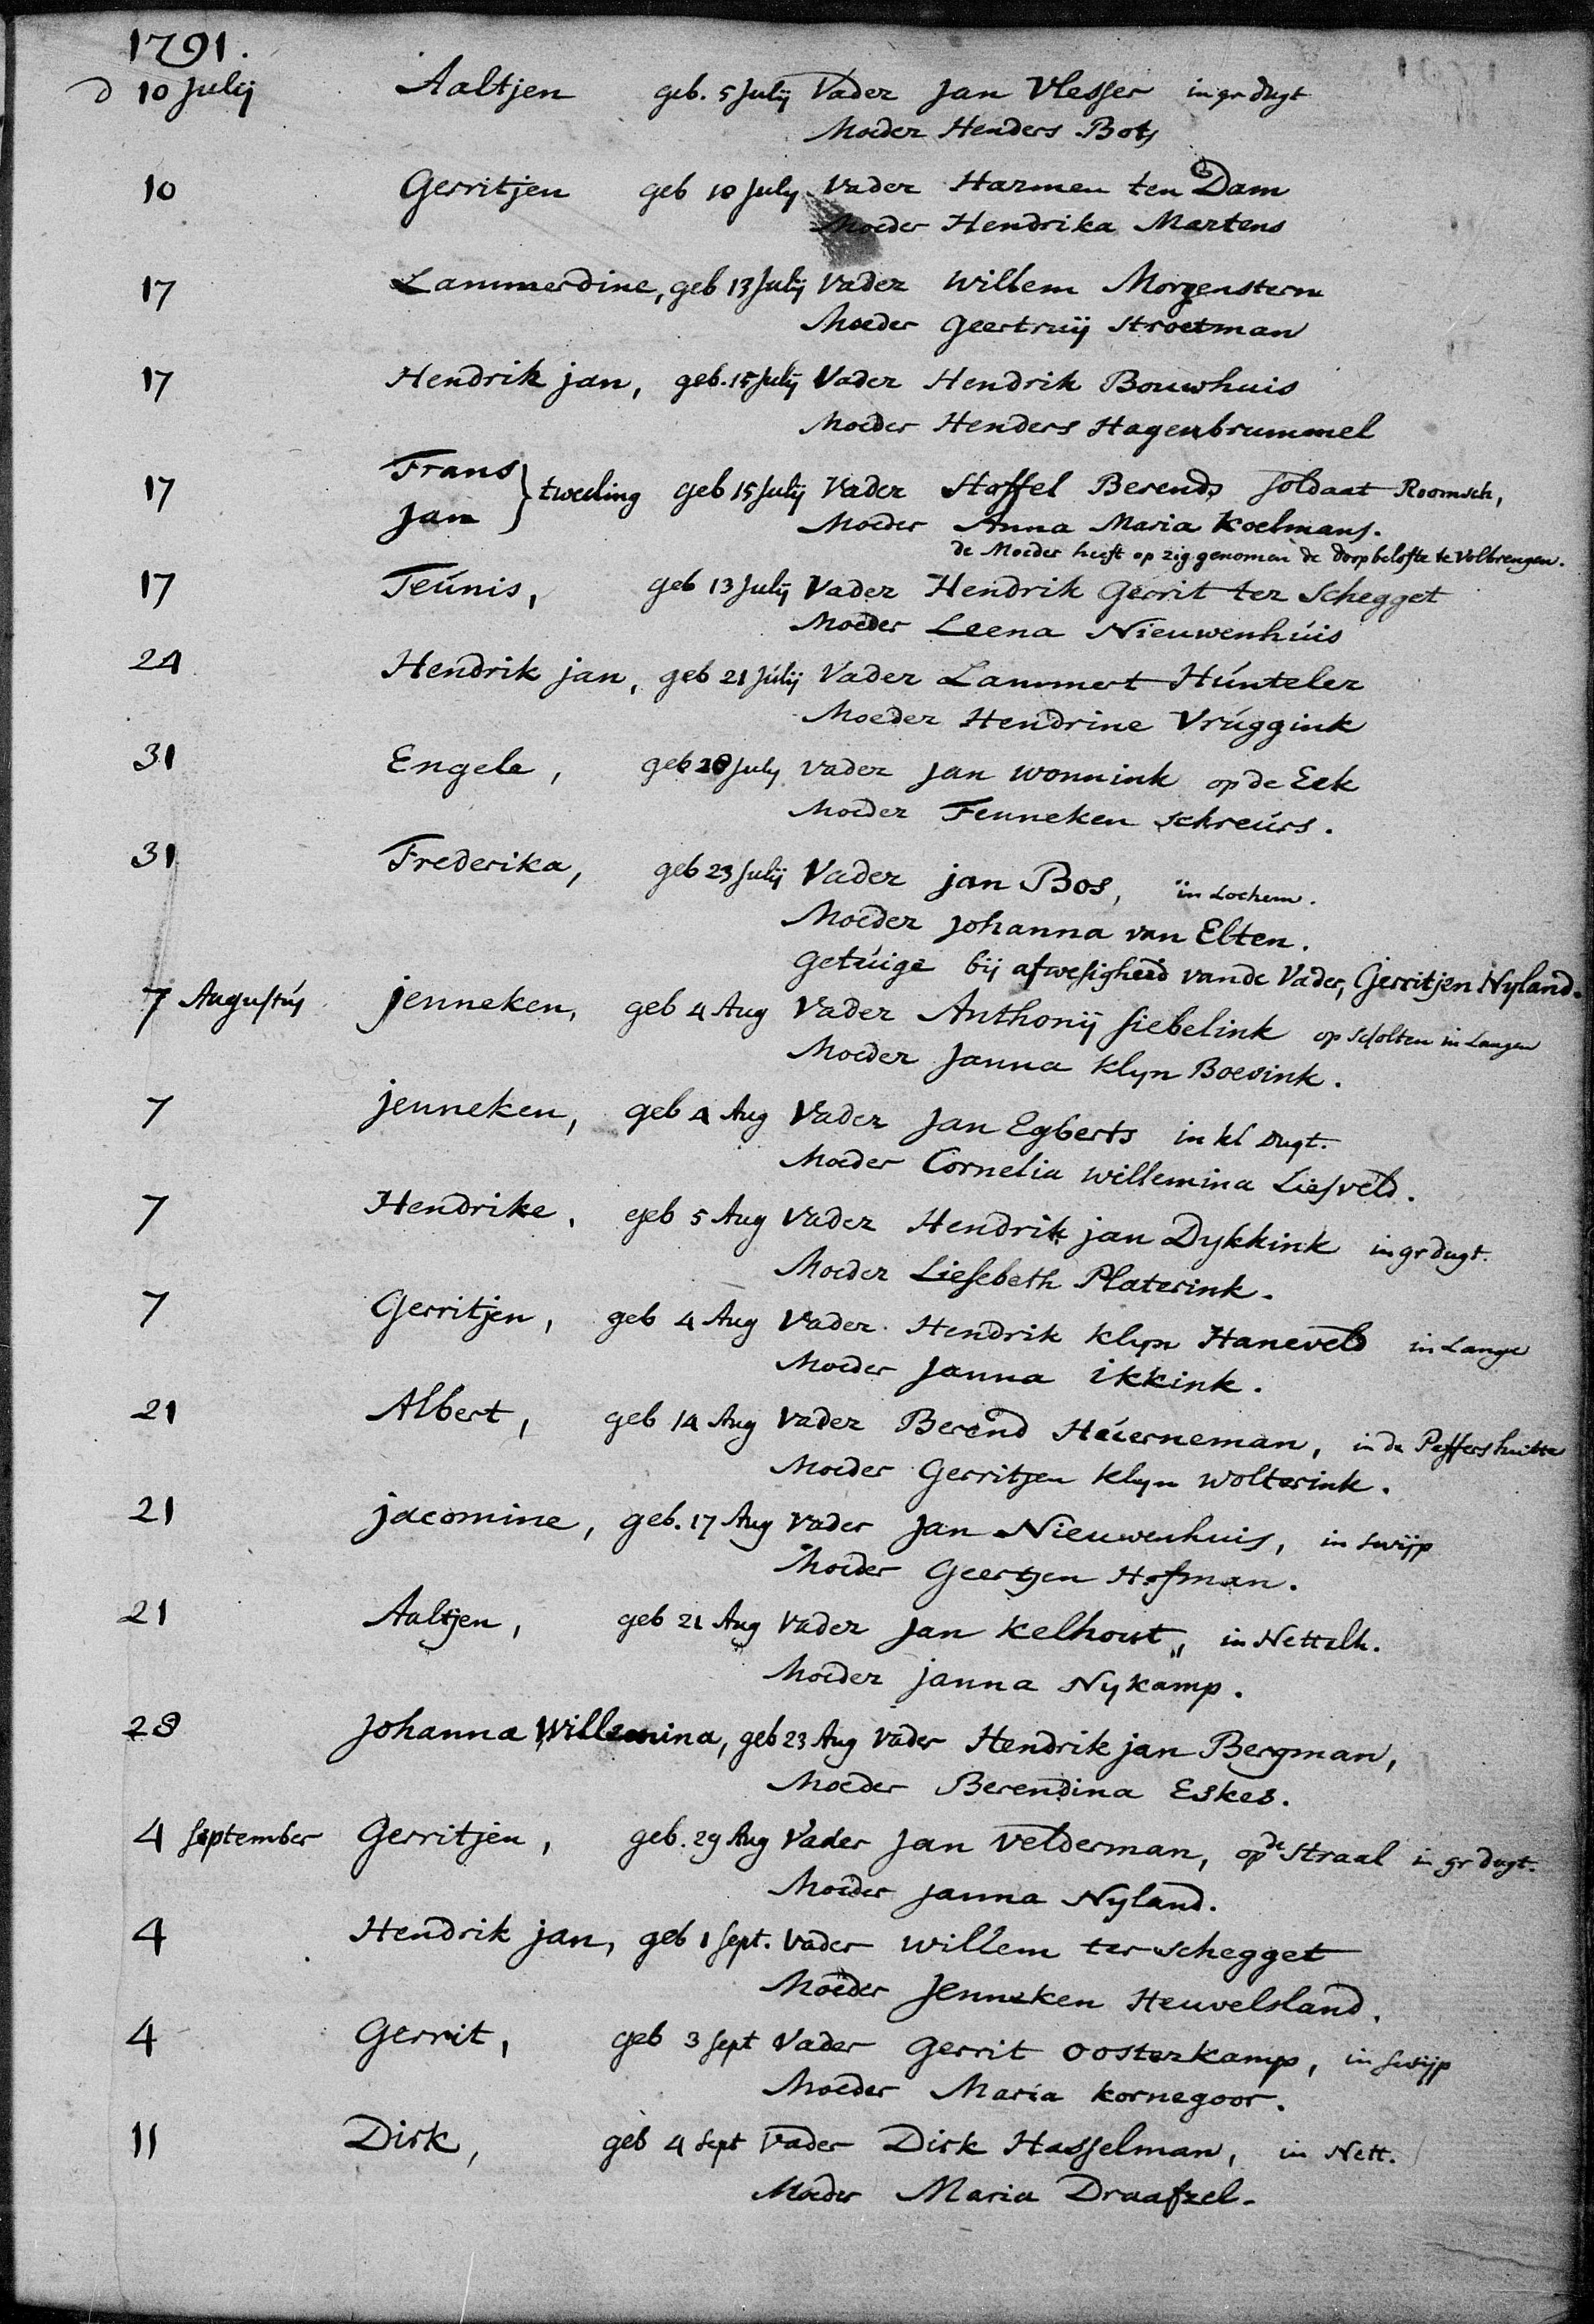 1791.
d 10 Julij Aaltjen geb. 5 Julij Vader Jan Vlesser in gr dugt
Moeder Henders Bots
10 Gerritjen geb 10 July Vader Harmen ten Dam
Moeder Hendrika Martens
17 Lammerdine, geb 13 Julij Vader Willem Morgenstern
Moeder Geertruij Stroetman
17 Hendrik jan, geb. 15 Julij Vader Hendrik Bouwhuis
Moeder Henders Hagenbrummel
17 Frans } tweeling geb 15 Julij Vader Stoffel Berends Soldaat Roomsch,
Jan Moeder Anna Maria Koelmans.
de Moeder heeft op zig genomen de doopbelofte te Volbrengen.
17 Teúnis, geb 13 Julij Vader Hendrik Gerrit ter Schegget
Moeder Leena Nieuwenhúis
24 Hendrik jan, geb 21 Júlij Vader Lammert Húnteler
Moeder Hendrine Vrúggink
31 Engele, geb 28 July Vader Jan Wonnink op de Eek
Moeder Fenneken Schreúrs.
31 Frederika, geb 23 Julij Vader jan Bos, in Lochem.
Moeder Johanna van Elten.
Getúige bij afwesigheid vande Vader, Gerritjen Nyland.
7 Augustús jenneken, geb 4 Aug Vader Anthonij Siebelink op Scholten in Langen
Moeder Janna Klyn Boevink.
7 jenneken, geb 4 Aug Vader Jan Egberts in kl Dugt.
Moeder Cornelia Willemina Liesveld.
7 Hendrike, geb 5 Aug Vader Hendrik jan Dykkink in gr dugt.
Moeder Liesebeth Platerink.
7 Gerritjen, geb 4 Aug Vader Hendrik Klyn Haneveld in Lange
Moeder Janna ikkink.
21 Albert, geb 14 Aug Vader Berend Heúerneman, in de Peffershutte
Moeder Gerritjen Klyn Wolterink.
21 jacomine, geb. 17 Aug Vader Jan Nieuwenhuis, in Swijp
Moeder Geertjen Hofman.
21 Aaltjen, geb 21 Aug Vader Jan Kelhout, in Nettelh.
Moeder janna Nykamp.
28 Johanna Willemina, geb 23 Aug Vader Hendrik jan Bergman,
Moeder Berendina Eskes.
4 September Gerritjen, geb. 29 Aug Vader Jan Velderman, op de Straal in gr dugt.
Moeder Janna Nyland.
4 Hendrik jan, geb 1 Sept. Vader Willem ter Schegget
Moeder Jenneken Heuvelsland.
4 Gerrit, geb 3 Sept Vader Gerrit Oosterkamp, in Swijp
Moeder Maria Kornegoor.
11 Dirk, geb 4 Sept Vader Dirk Hasselman, in Nett.
Moeder Maria Draafzel.